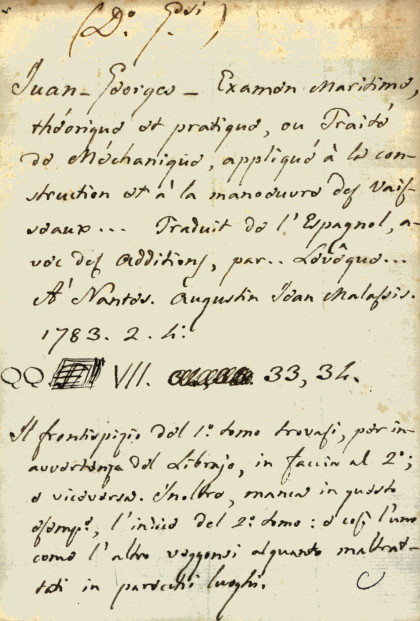 (D.º Gesi)
Juan-Georges - Examen Maritime,
théorique et pratique, ou Traité
de Méchanique, appliqué à la con-
struction et à la manoeuvre des Vais-
seaux... Traduit de l'Espagnol, a-
vec des additions, par.. Lévêque...
A' Nantes. Augustin Jean Malassis.
1783. 2. 4.º
QQ VII. 33, 34.
Il frontispizio del 1.º tomo trovasi, per in-
avvertenza del Librajo, in faccia al 2º;
e viceversa. Inoltre, manca in questo
esemp.º, l'indice del 2.º tomo: e così l'uno
come l'altro veggonsi alquanto maltrat-
tati in parecchi luoghi.